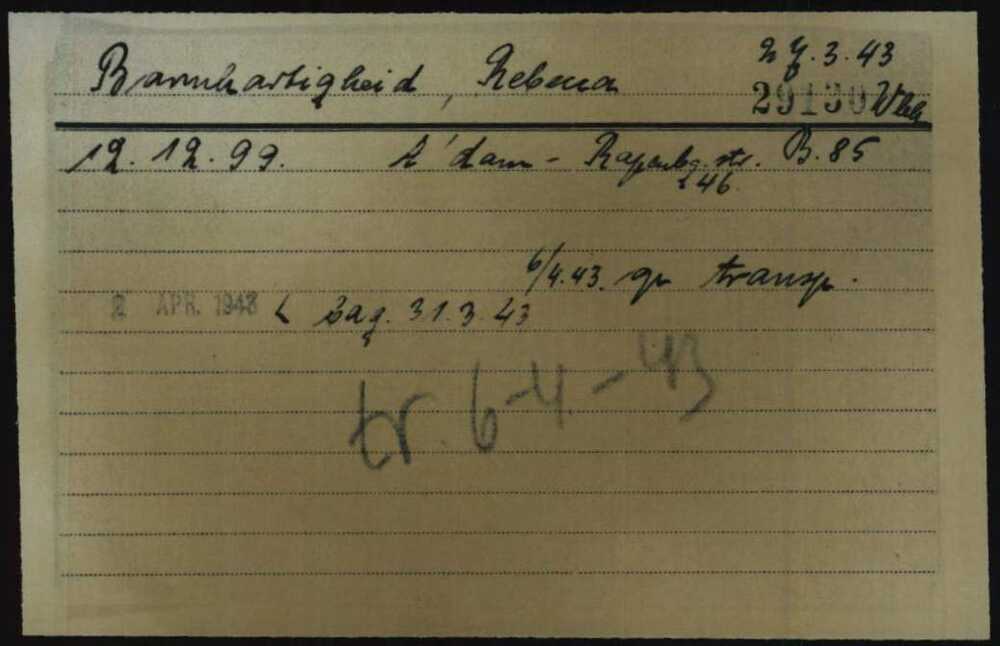 Barmhartigheid, Rebecca 27.3.43
29130
12.12.99. A'dam - Rapenbg.str. B.85
246
6/4.43. gr transp.
2 APR. 1943 < Bag. 31.3.43
tr. 6-4-43